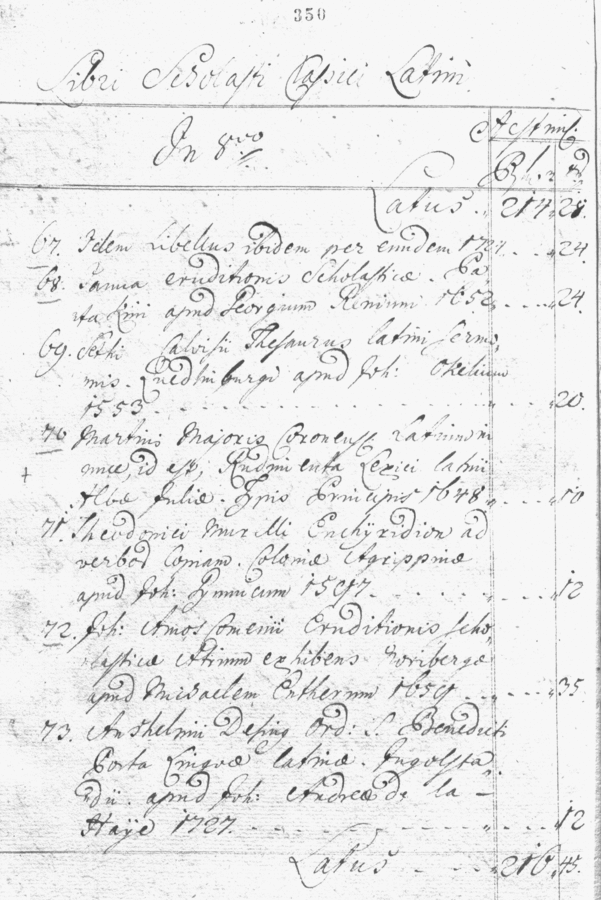 350
Libri Scholasti Classici Latini
In 8vo
Aestim.
Rh. xr
Latus 214 28
67. Idem Libellus ibidem per eundem 1724. 24
68. Janua eruditionis Scholasticæ. Pa
apud Georgium 1652 24
69. Sethi Calvisii Thesaurus latini sermo,
nis. Quedlinburgi apud Joh: Okelium
1553 20
70. Martini Majoris Coronensis Latium in
nuce, id est, Rudimenta Lexici latini
+
Albæ Juliæ. Typis Principis 1648 10
71. Theodorici Murelli Enchÿridion ad
verbor Copiam. Coloniæ Agrippinæ
apud Joh: Gymnicum 1597. 12
72. Joh: Amos Comenii Eruditionis scho,
lasticæ Atrium exhibens Noribergæ
apud Michaelem Entherum 1659 35
73. Anshelmi Desing Ord: S. Benedicti
Porta Linguæ latinæ. Ingolsta
dii. apud Joh: Andreæ de la
Haÿe 1727. 12
Latus 216 45.